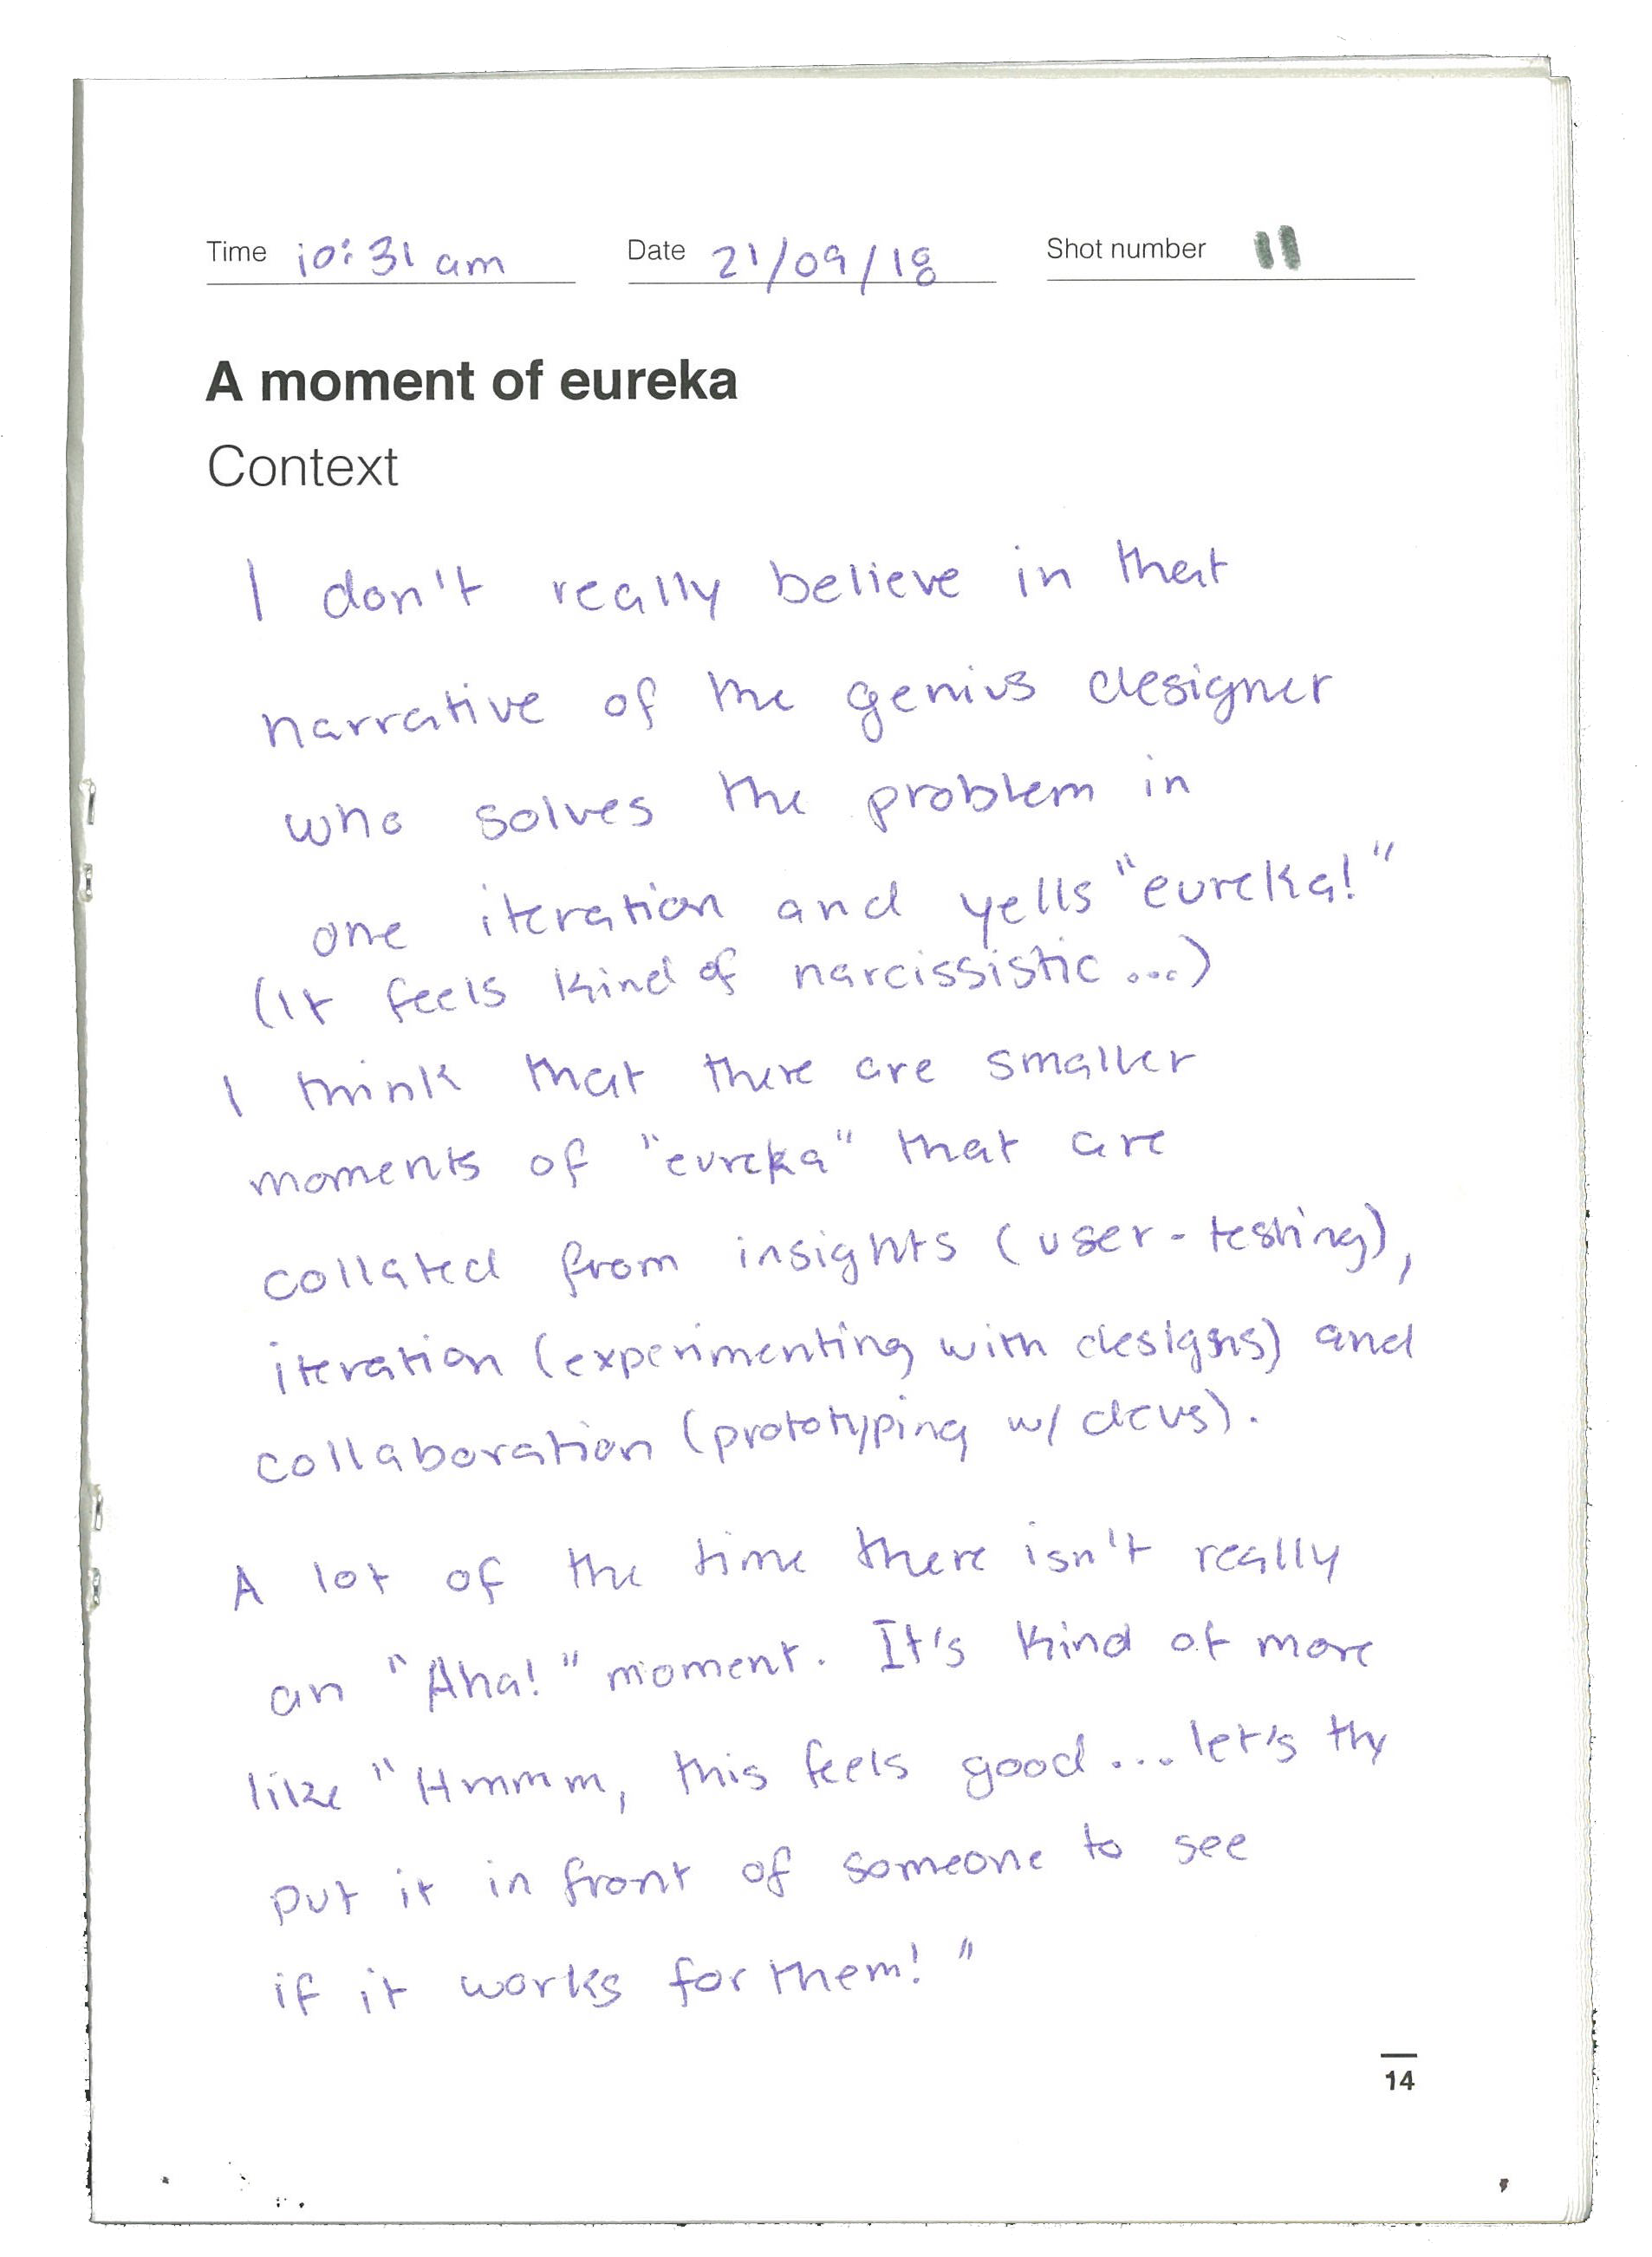 Time 10:31 am Date 21/09/18 Shot number 11
A moment of eureka
Context
I don't really believe in that
narrative of the genius designer
who solves the problem in
one iteration and yells "eureka!"
(It feels kind of narcissistic...)
I think that there are smaller
moments of "eureka" that are
collated from insights (user-testing),
iteration (experimenting with designs) and
collaboration (prototyping w/ devs).
A lot of the time there isn't really
an "Aha!" moment. It's kind of more
like "Hmmm, this feels good... let's try
put it in front of someone to see
if it works for them!"
14